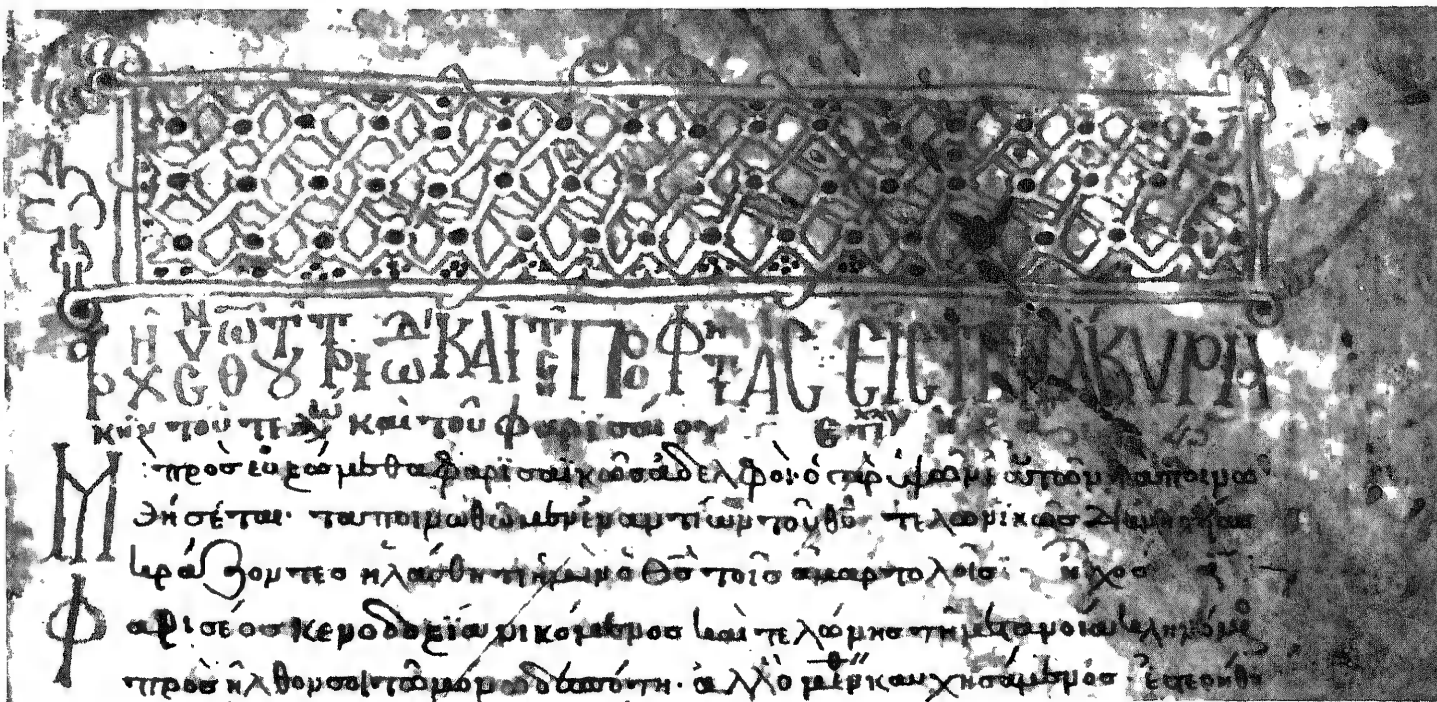 ΡΧῊ ςΝΥ ΘΩ͂ ΤΟΥ͂ ΤΡΙΩΔ' ΚΑῚ ΤῊς ΠΡΟΦΗΤΑC ΕΙC ΤΗ ΚΥΡΙΑ
κὴν τοῦ τελώ καὶ τοῦ φαρϊσαίου
Μ προσευξώμεθα φαρϊσαϊκῶς ἀδελφοὶ· ὁ γὰρ ὑψῶν ἑαὐτὸν ταποινω
θήσέται· ταποινωθῶμεν ἐναντίων τοῦ θῦ τελωνϊκῶς διὰ νηστείας
κράζοντες ηλάσθητι ἡμῖν ὁ Θς τοῖς ἁμαρτολοῖς· ἦχος
Φ αρισέος κενοδοξϊία νικόμενος καὶ τελώνης τῆ μετανοία κληνόμε
προσῆλθον σοὶ τῶ μόνω δεσπότη· ἀλλ ὁ μὲν καυχησάμενος· ἐστερήθη